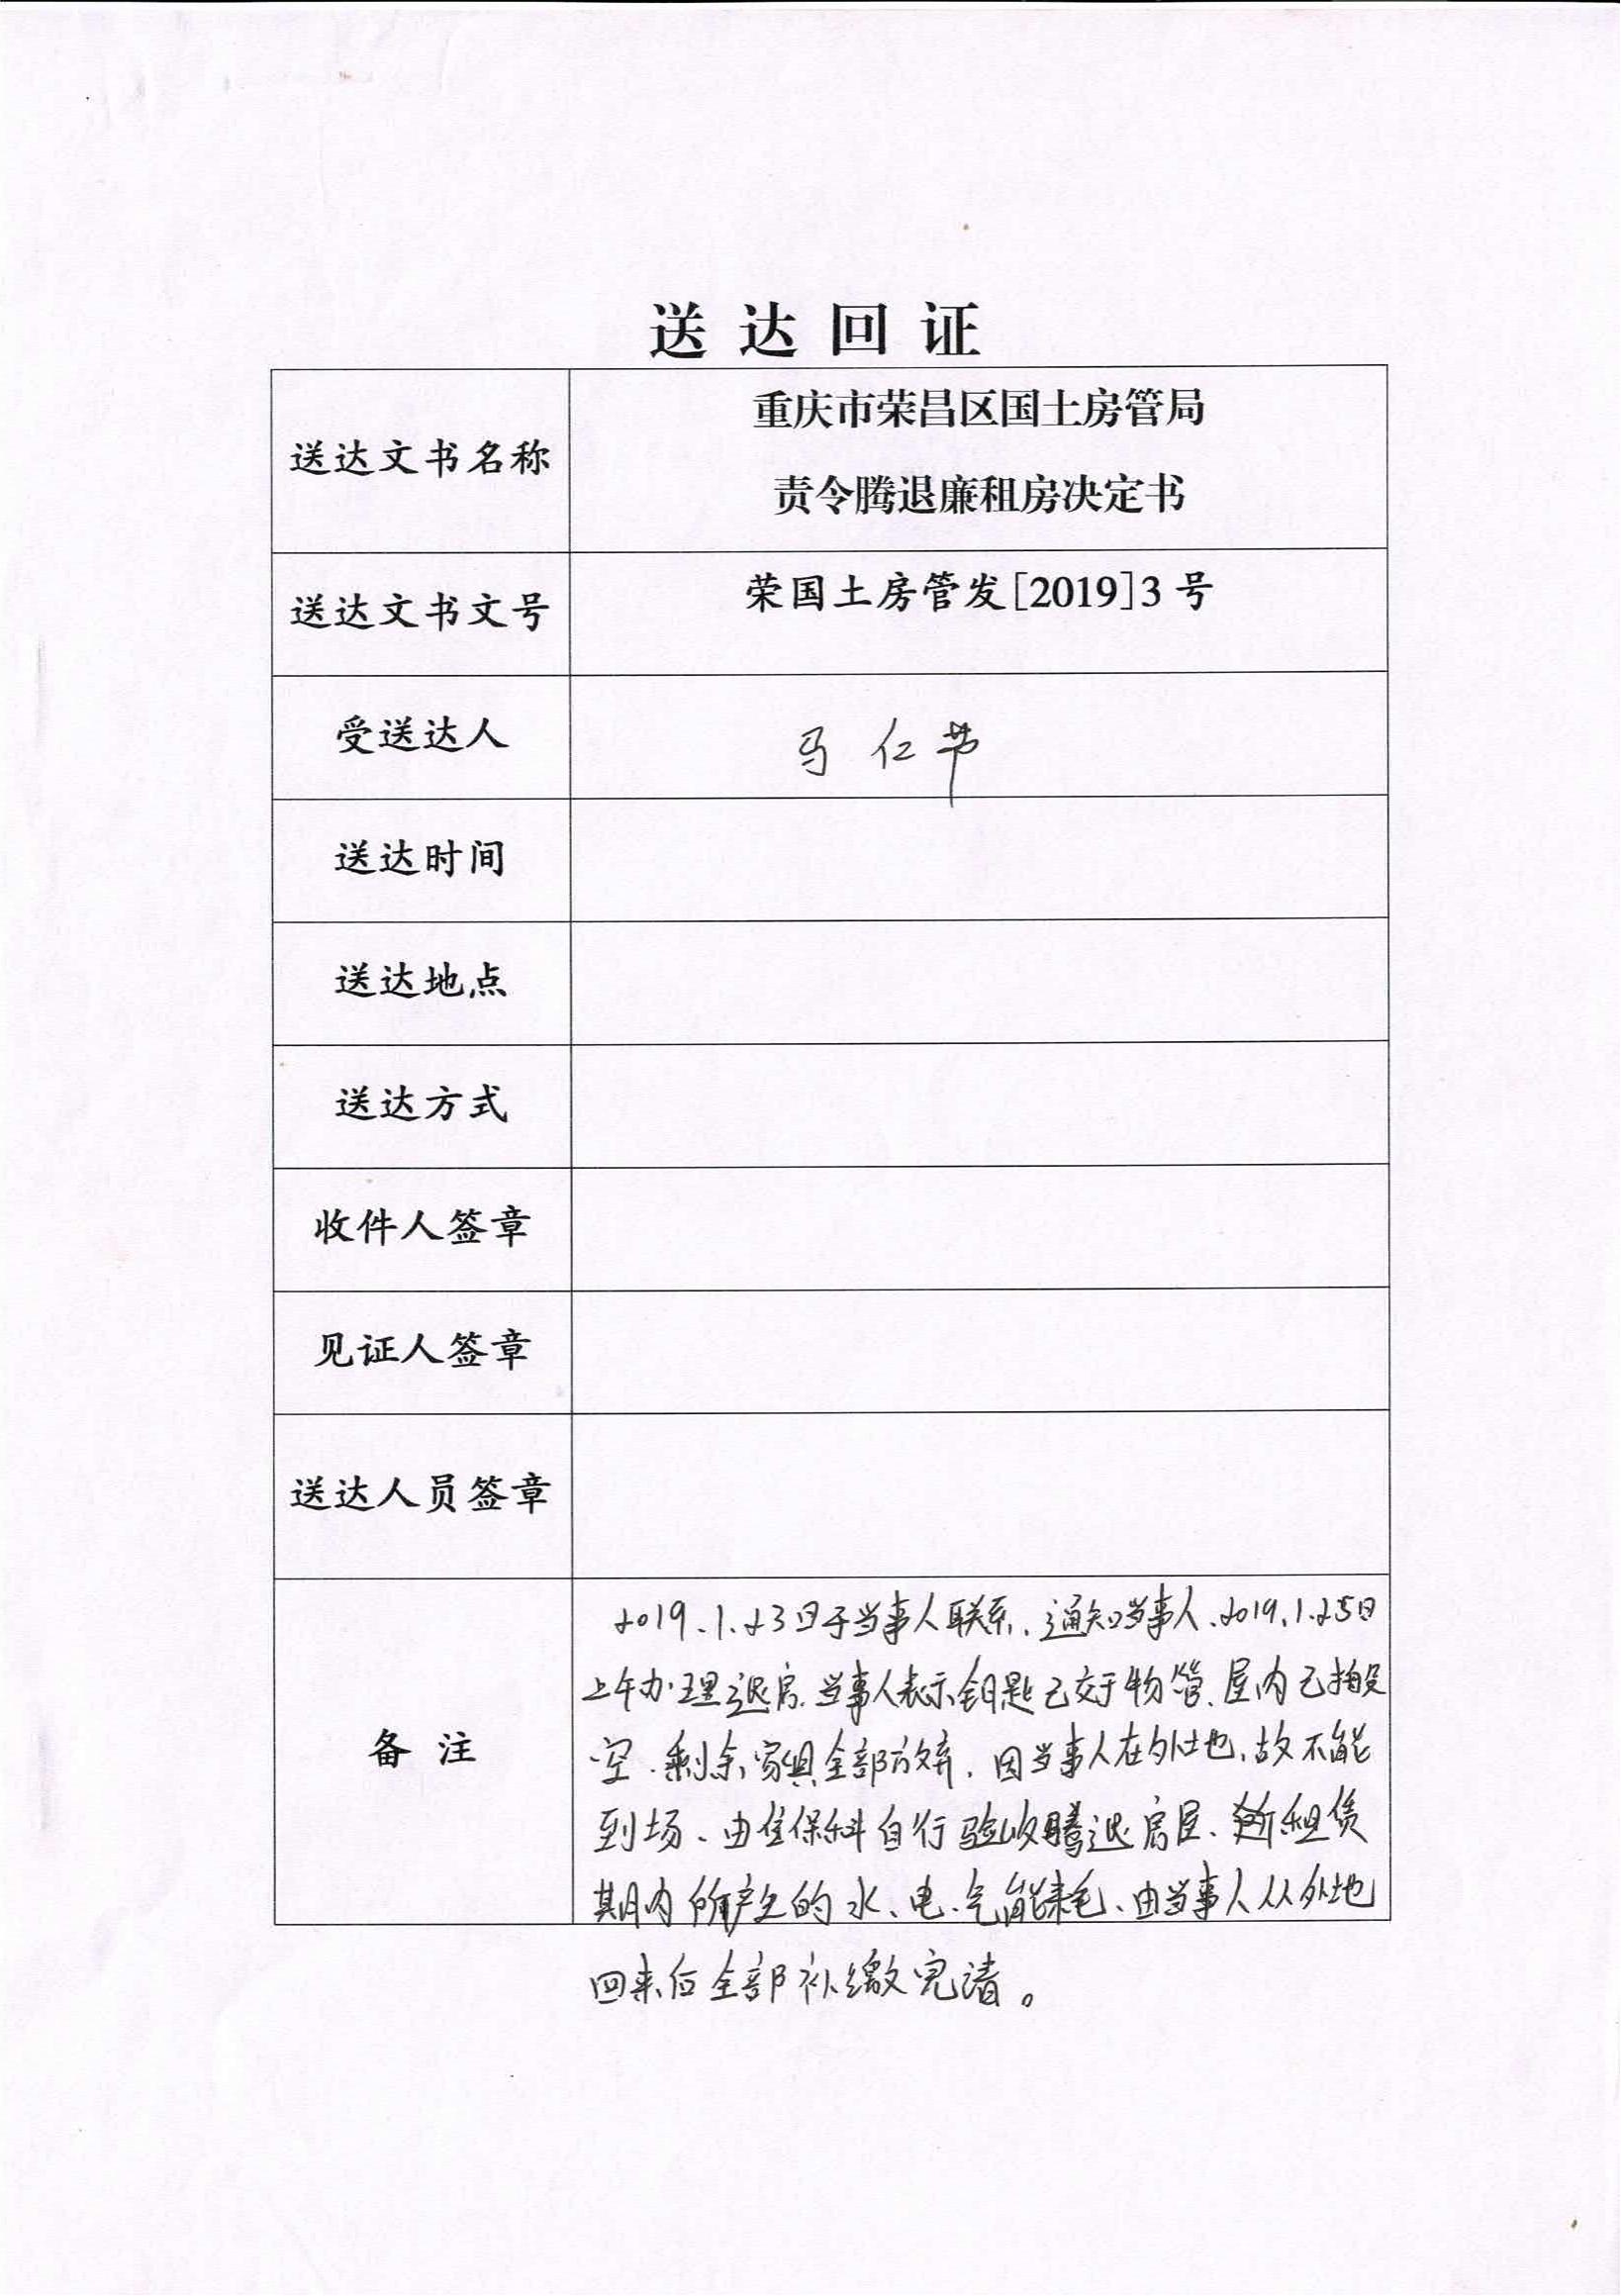 送达回证
送达文书名称
重庆市荣昌区国土房管局
责令腾退廉租房决定书
送达文书文号
荣国土房管发[2019]3号
受送达人
马仁节
送达时间
送达地点
送达方式
收件人签章
见证人签章
送达人员签章
备注
2019.1.23日于当事人联系,通知当事人、2019.1.25日
上午办理退房.当事人表示钥匙已交于物管、屋内已搬
空.剩余家俱全部放弃.因当事人在外地,故不能
到场、由住保科自行验收腾退房屋、所租赁
期内所产生的水、电、气能耗、由当事人从外地
回来后全部补缴完清。